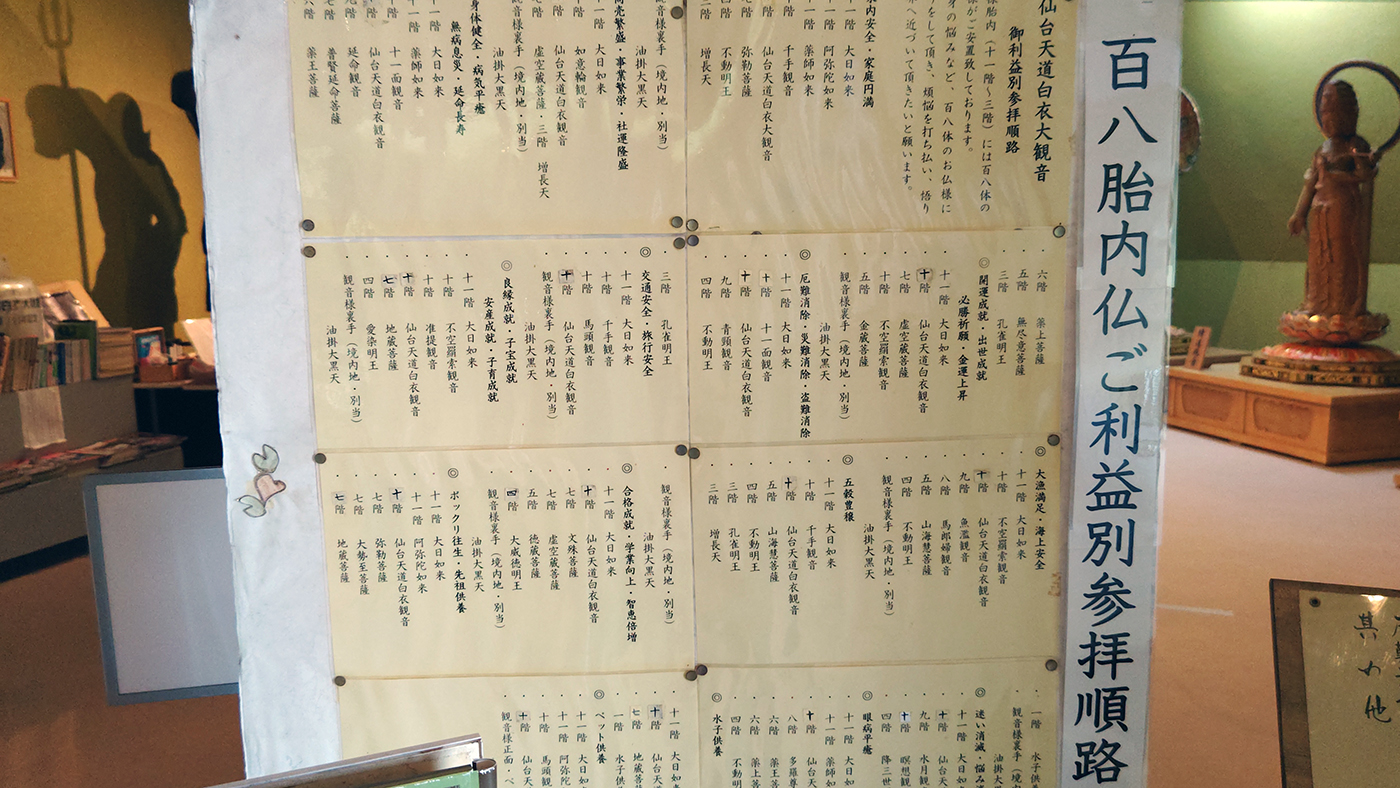 百八胎内仏ご利益別参拝順路
仙台天道白衣大観音
御利益別参拝順路
様胎内(十一階~三階)には百八体の
様がご安置致しております。
身の悩みなど、百八体のお仏様に
をして頂き、煩悩を打ち払い、悟り
へ近づいて頂きたいと願います。
内安全・家庭円満
十一階 大日如来
十一階 阿弥陀如来
十一階 薬師如来
十階 千手観音
仙台天道白衣大観音
弥勒菩薩
不動明王
三階 増長天
観音様裏手(境内地・別当)
油掛大黒天
商売繁盛・事業繁栄・社運隆盛
十一階 大日如来
十階 如意輪観音
仙台天道白衣観音
虚空蔵菩薩・三階 増長天
観音様裏手(境内地・別当)
油掛大黒天
身体健全・病気平癒
無病息災・延命長寿
十一階 大日如来
十一階 薬師如来
十一面観音
仙台天道白衣観音
延命観音
普賢延命菩薩
六階 薬王菩薩
六階 薬上菩薩
五階 無尽意菩薩
三階 孔雀明王
◎開運成就・出世成就
必勝祈願・金運上昇
十一階 大日如来
十階 仙台天道白衣観音
七階 虚空蔵菩薩
十階 不空羂索観音
五階 金蔵菩薩
観音様裏手(境内地・別当)
油掛大黒天
◎厄難消除・災難消除・盗難消除
十一階 大日如来
十階 十一面観音
十階 仙台天道白衣観音
九階 青頸観音
四階 不動明王
三階 孔雀明王
◎交通安全・旅行安全
十一階 大日如来
十階 千手観音
十階 馬頭観音
十階 仙台天道白衣観音
油掛大黒天
観音様裏手(境内地・別当)
◎良縁成就・子宝成就
安産成就・子育成就
十一階 大日如来
十階 不空羂索観音
十階 准提観音
十階 仙台天道白衣観音
七階 地蔵菩薩
四階 愛染明王
観音様裏手(境内地・別当)
油掛大黒天
◎大漁満足・海上安全
十一階 大日如来
十階 不空羂索観音
十階 仙台天道白衣観音
九階 魚濫観音
八階 馬郎婦観音
五階 山海慧菩薩
四階 不動明王
観音様裏手(境内地・別当)
油掛大黒天
◎五穀豊穣
十一階 大日如来
十階 千手観音
十階 仙台天道白衣観音
五階 山海慧菩薩
四階 不動明王
三階 孔雀明王
三階 増長天
観音様裏手(境内地・別当)
油掛大黒天
◎合格成就・学業向上・智恵倍増
十一階 大日如来
十階 仙台天道白衣観音
七階 文殊菩薩
七階 虚空蔵菩薩
五階 徳蔵菩薩
四階 大威徳明王
観音様裏手(境内地・別当)
油掛大黒天
◎ポックリ往生・先祖供養
十一階 大日如来
十一階 阿弥陀如来
十階 仙台天道白衣観音
七階 弥勒菩薩
七階 大勢至菩薩
七階 地蔵菩薩
一階 水子供
観音様裏手(境
油掛大
◎迷い消滅・悩み
十一階 大日如
十階 仙台天
九階 水月観
十階 瞑想観
四階 降三世
◎眼病平癒
十一階 大日
十一階 薬師如
十階 仙台天
八階 多羅尊
六階 薬王菩
六階 薬上菩
四階 不動明
◎水子供養
十一階 大日如来
十階 仙台天
七階 地蔵菩薩
一階 水子供
◎ペット供養
十一階 大日如
十一階 阿弥陀
十階 馬頭観
十階 仙台天
観音様正面・ペ
其の他